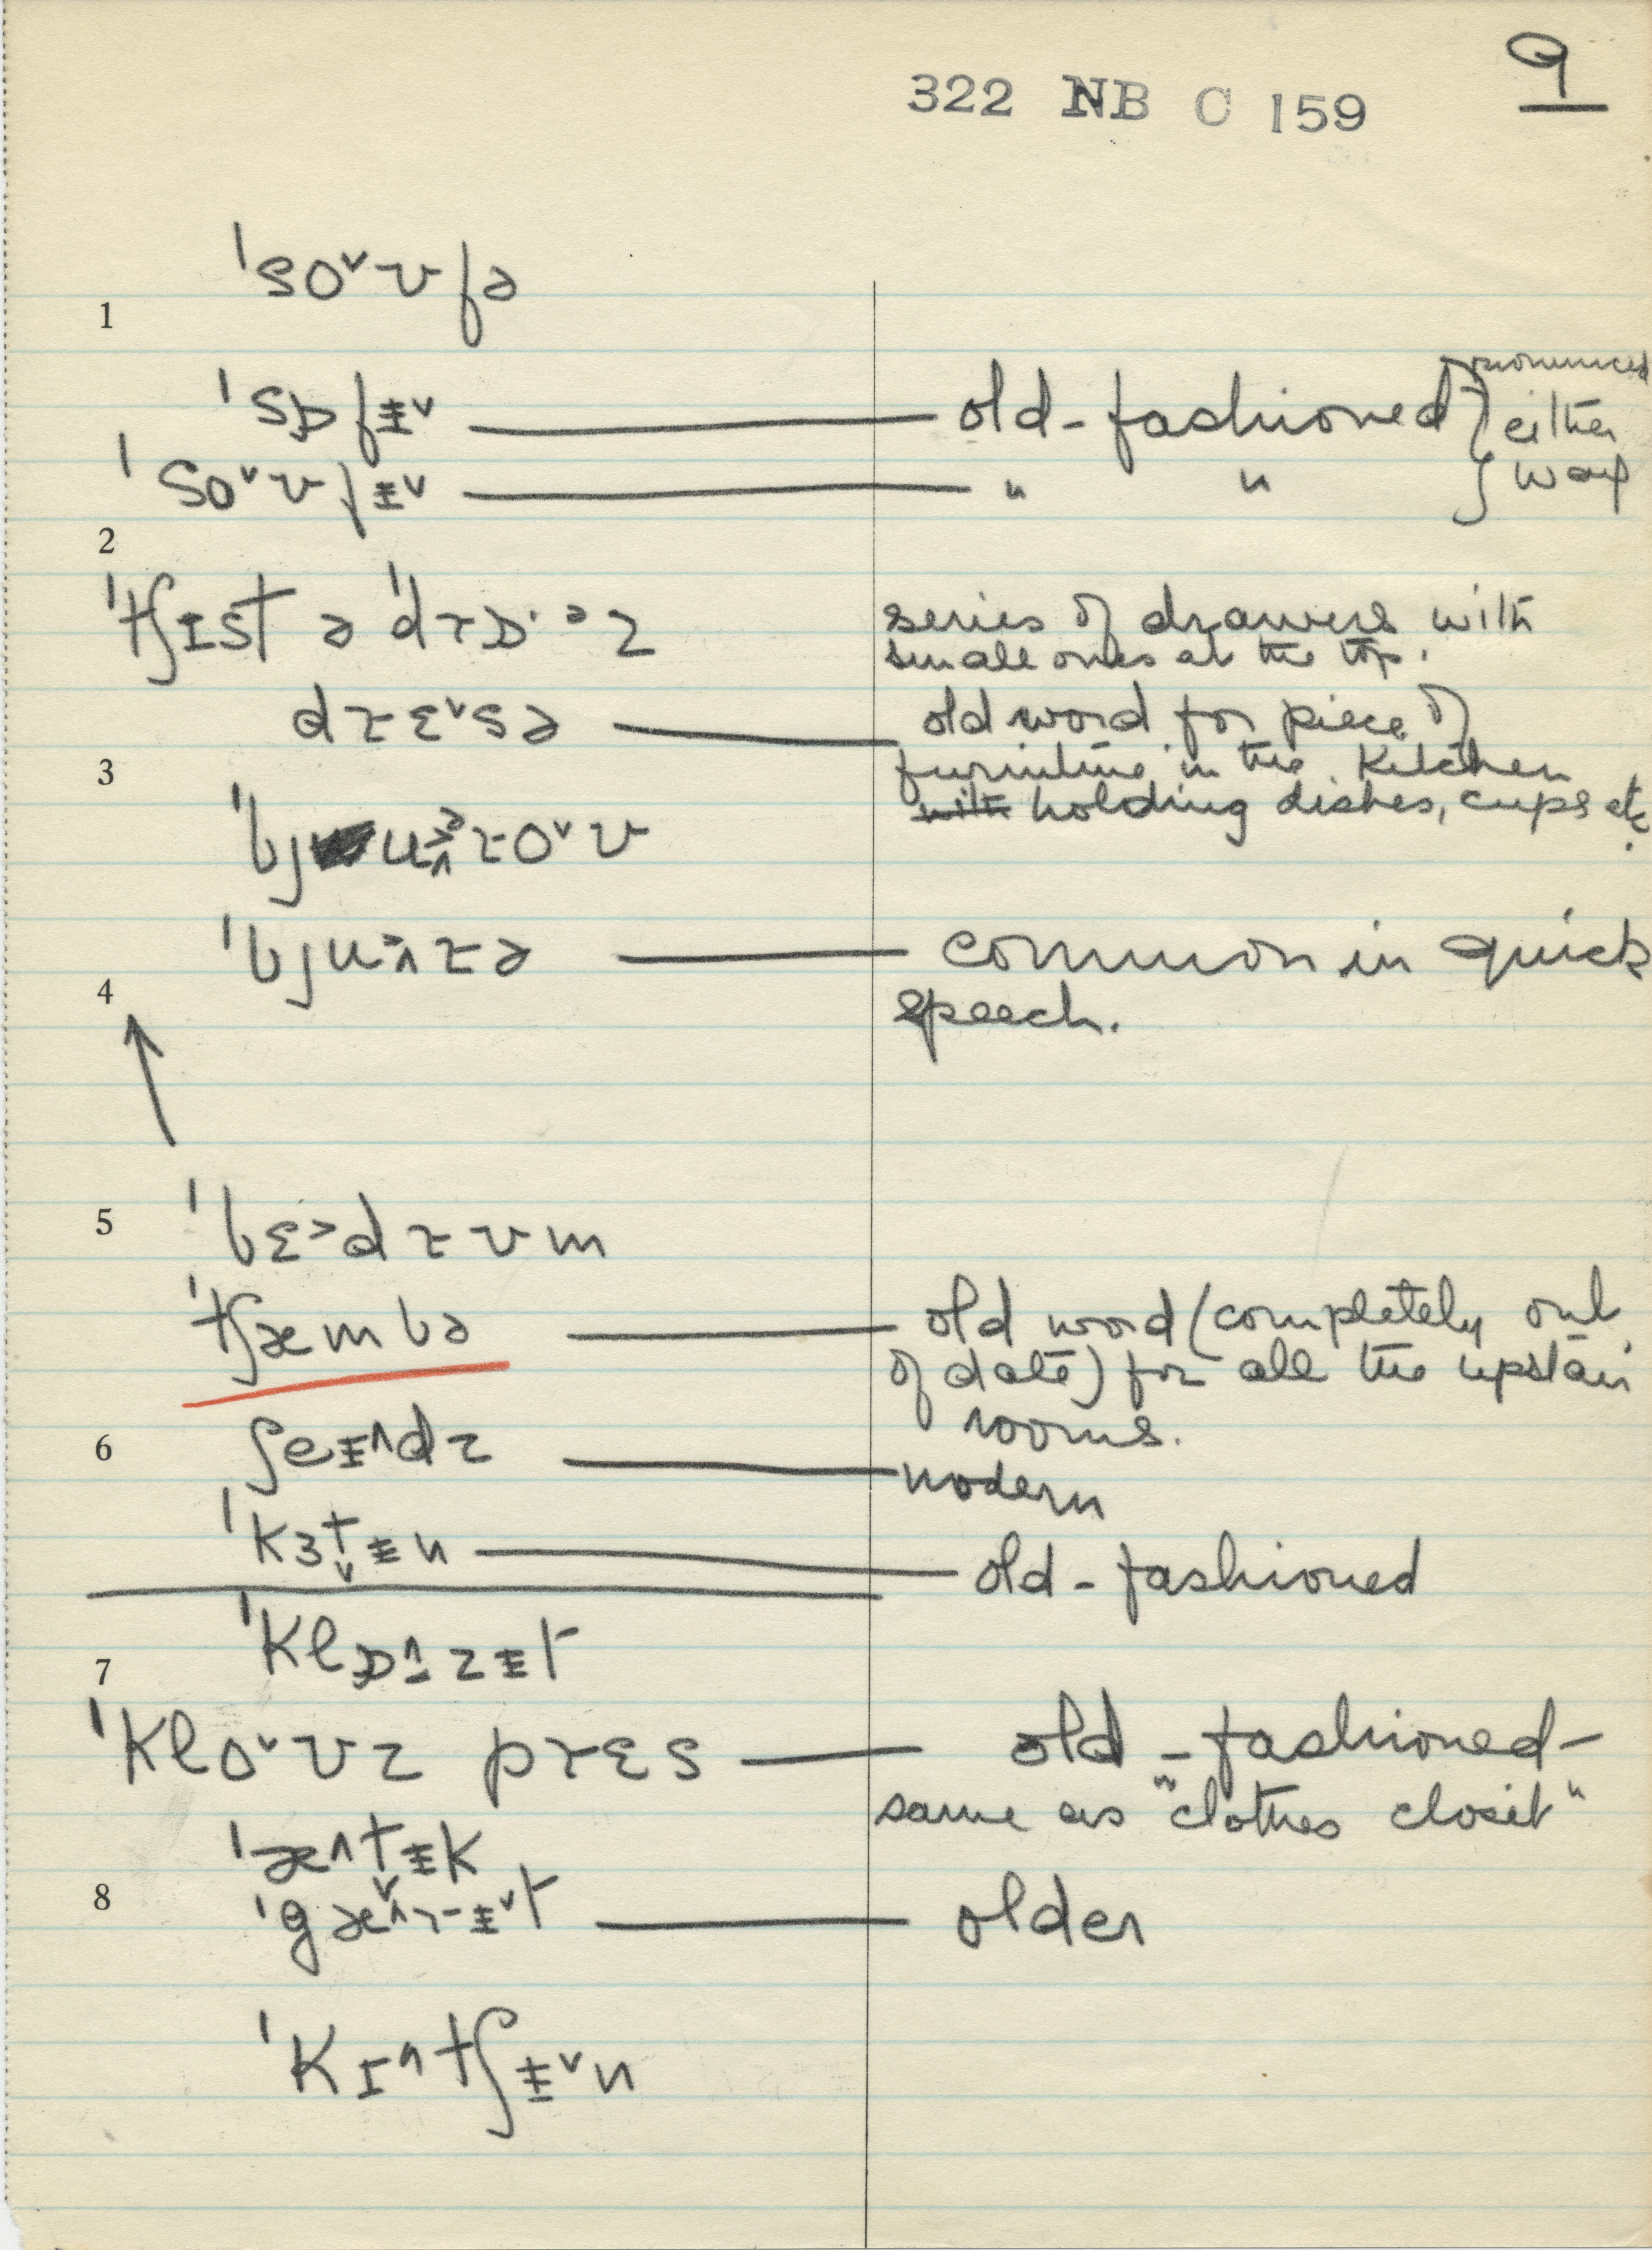 9
322 NB C 159
ˈsoᵛʊfə
1
pronounced
ˈsɒfɨᵛ — old-fashioned } either
ˈsoᵛʊfɨᵛ — " " } way
2
ˈtʃɪst ə ˈdɾɒ·ᵊz series of drawers with
small ones at the top.
dɾɛᵛsə — old word for piece of
furniture in the kitchen
3
with holding dishes, cups etc.
ˈbjuɾoᵛʊ
ˈbjuɾə — common in quick
4
speech.
5
ˈbɛ˃dɾʊm
ˈtʃæmbə — old word (completely out
of date) for all the upstair
rooms.
6
ʃeɨ˄dz — modern
ˈkɜtɨn — old-fashioned
ˈklɒzɨt
7
ˈkloᵛʊz pɾɛs — old-fashioned-
same as "clothes closet"
ˈæ˄tɨk
8
ˈgæ˄ɾɨᵛt — older
ˈkɪ˄tʃɨᵛn